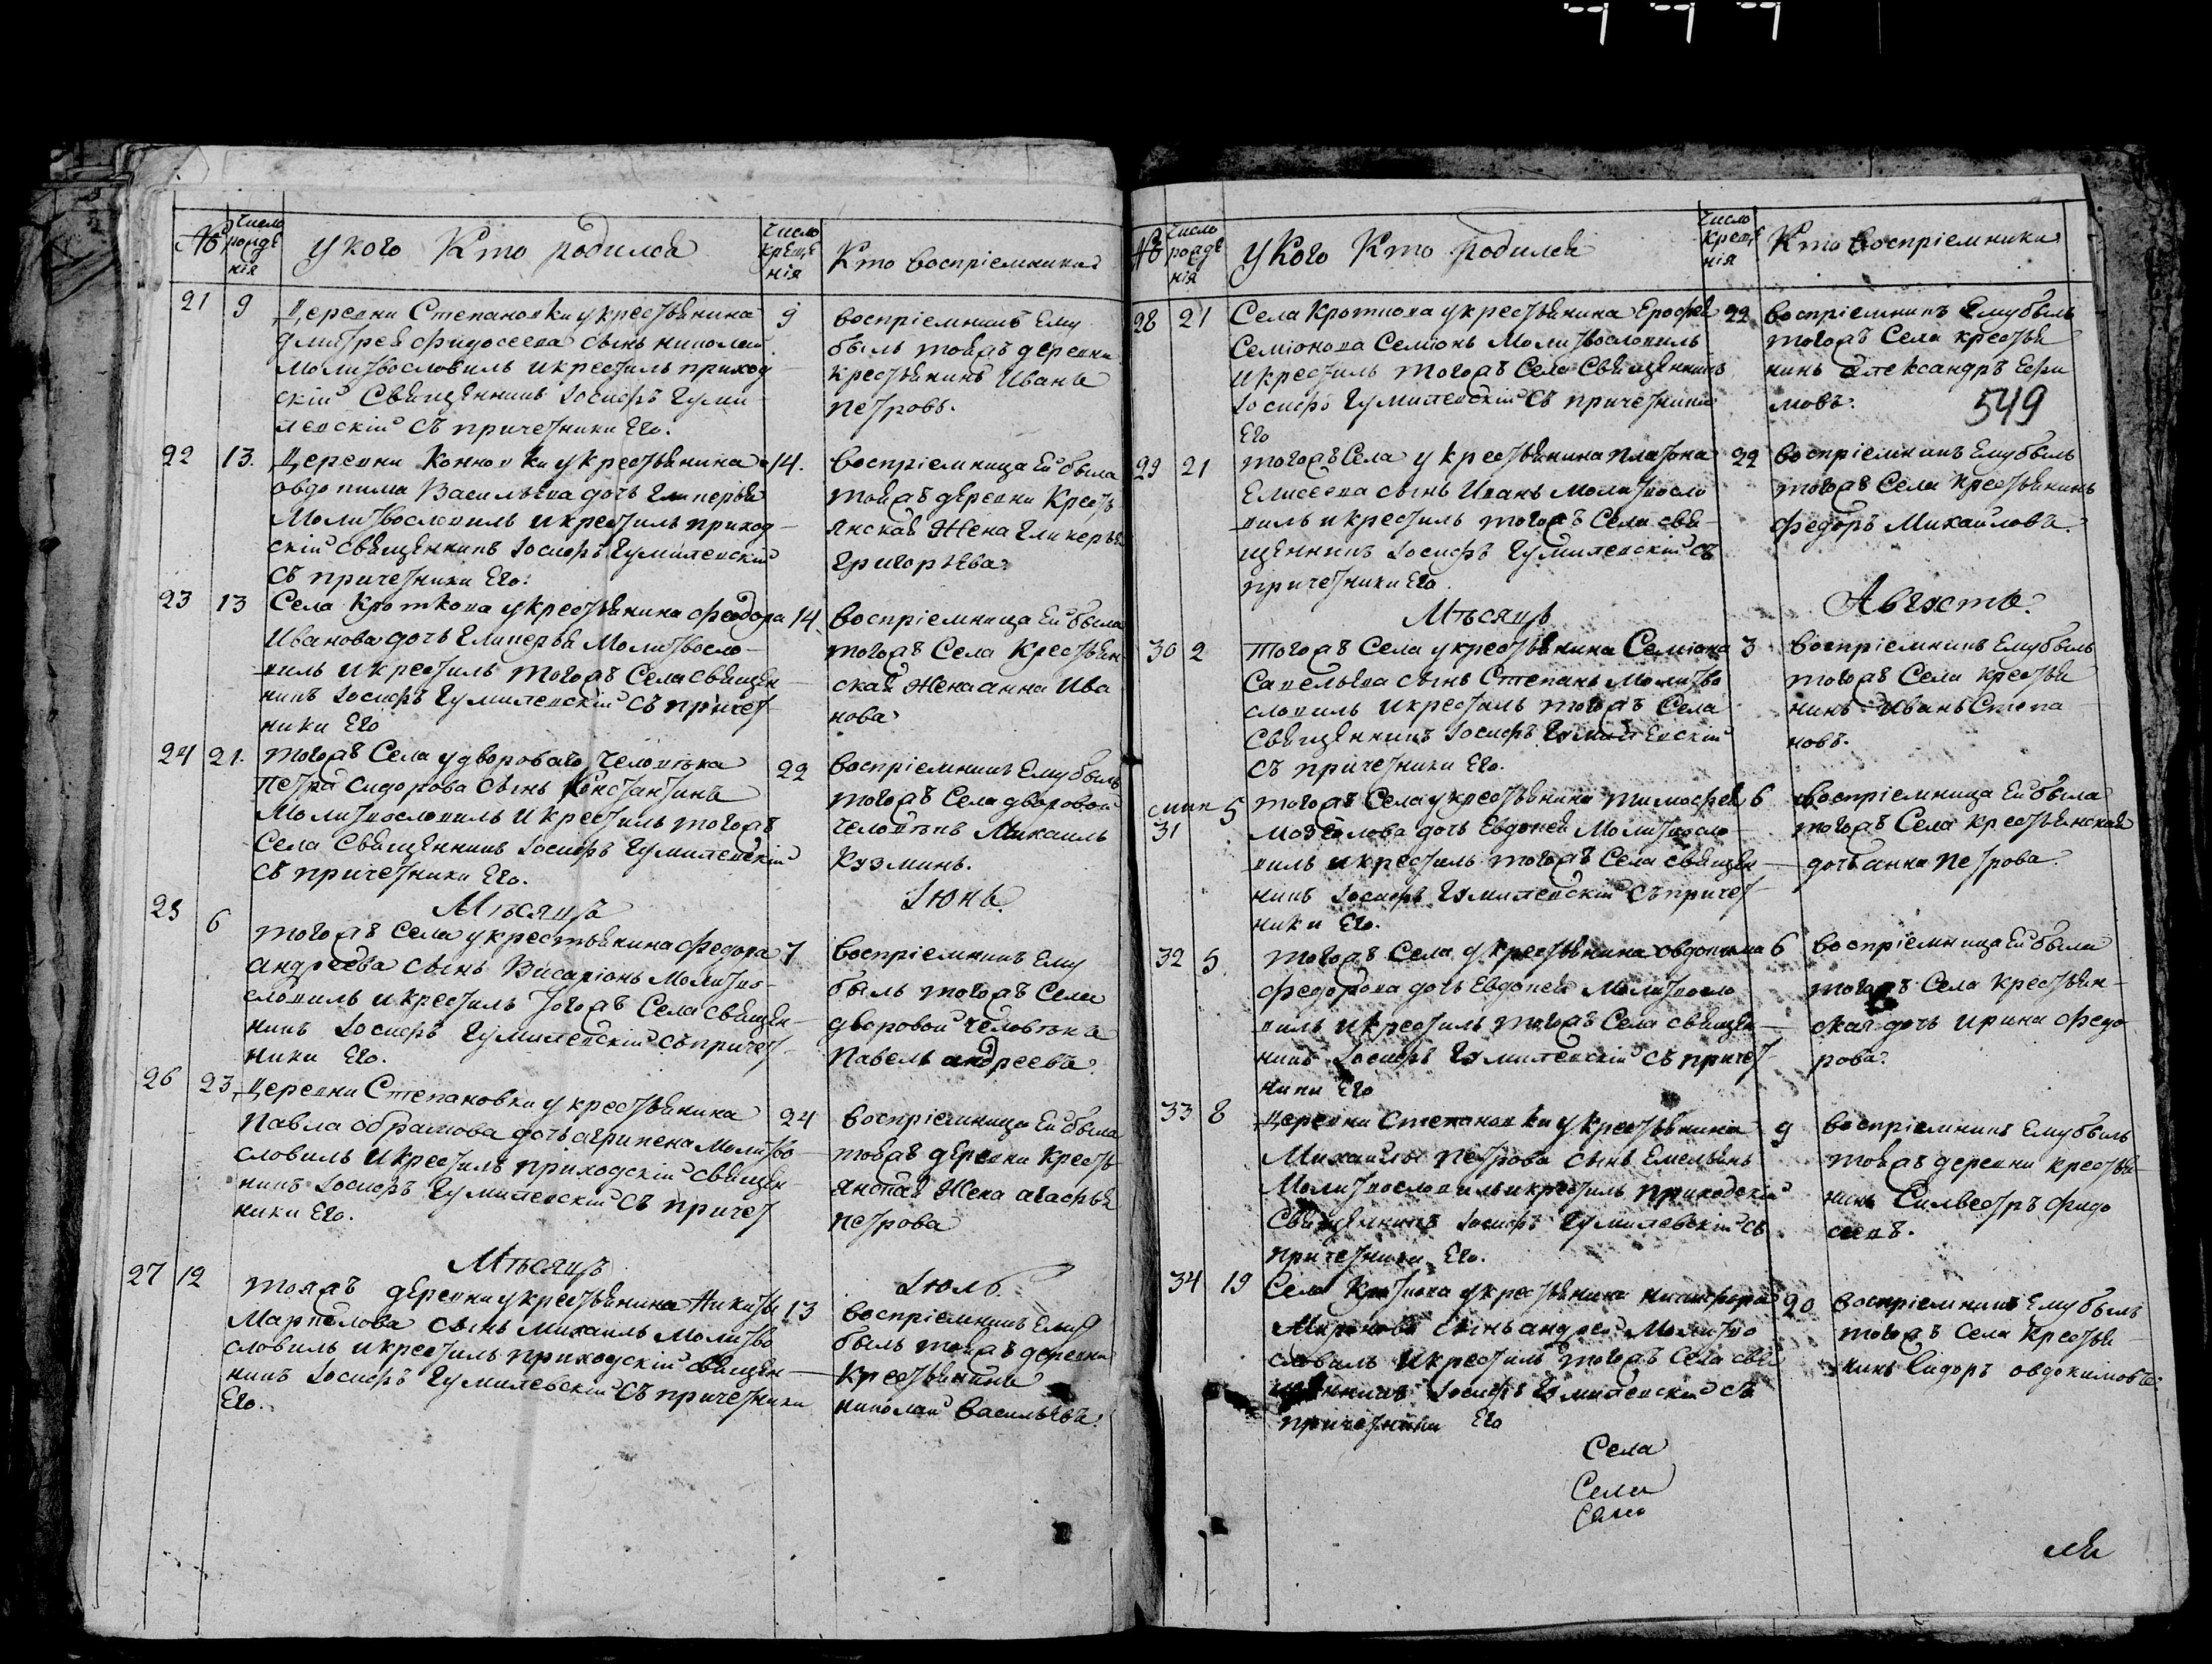 № число рожде нія
у кого Кто родился
число креще нія
Кто воспріемники
21 9 Деревни Степановки у крестьянина 9
Дмитрея Фидосеева сынъ николай
Молитвословилъ и крестилъ приход
скій Священникъ Іосифъ Гуми
левскій съ причетники Его.
воспріемникъ Ему
былъ тояжъ деревни
крестьянинъ Иванъ
петровъ.
22 13. Деревни Конновки у крестьянина 14.
овдокима Васильева дочь Гликерья
Молитвословилъ и крестилъ приход
скій священникъ Іосифъ Гумилевскій
съ причетники Его.
воспріемница Ей была
тояжъ деревни Кресть
янская Жена Гликерья
Григорьева
23 13 Села Кроткова у крестьянина Феодора 14.
Иванова дочь Гликерья Молитвосло
вилъ и крестилъ тогожъ Села священ
никъ Іосифъ Гумилевскій съ причет
ники Его
воспріемница Ей была
тогожъ Села Крестьян
ская жена анна Ива
нова
24 21. тогожъ Села у двороваго человѣка 22
Петра Сидорова сынъ Константинъ
Молитвословилъ и крестилъ тогожъ
Села Священникъ Іосифъ Гумилевскій
съ причетники Его.
воспріемникъ Ему былъ
тогожъ Села дворовой
человѣкъ Михаилъ
Кузминъ.
Мѣсяцъ Іюнь
25 6 тогожъ Села у крестьянина Федора 7
андреева сынъ Висаріонъ Молитво
словилъ и крестилъ тогожъ Села Священ
никъ Іосифъ Гумилевскій съ причет
ники Его.
воспріемникъ Ему
былъ тогожъ Села
дворовой человѣкъ
Павелъ андреевъ
26 23. Деревни Степановки у крестьянина 24
Павла обрамова дочь агрипена Молитво
словилъ и крестилъ приходскій священ
никъ Іосифъ Гумилевскій съ причет
ники Его.
воспріемница Ей была
тояжъ деревни Кресть
янская Жена агафья
петрова
Мѣсяцъ Іюль
27 12 тояжъ деревни у крестьянина Никиты 13
Маркелова сынъ Михаилъ Молитво
словилъ и крестилъ приходскій священ
никъ Іосифъ Гумилевскій съ причетники
Его.
воспріемникъ Ему
былъ тояжъ деревни
Крестьянинъ
николай Васильевъ
№ число рожде нія
у кого Кто родился
число креще нія
Кто воспріемники
28 21 Села Кроткова у крестьянина Ерофея 22
Семіонова Семіонъ Молитвословилъ
и крестилъ тогожъ Села Священникъ
Іосифъ Гумилевскій съ причетники
Его
воспріемникъ Ему былъ
тогожъ Села крестья
нинъ Александръ Ефи
мовъ.
549
29 21 тогожъ Села у крестьянина платона 22
Елисеева сынъ Иванъ Молитвосло
вилъ и крестилъ тогожъ Села свя
щенникъ Іосифъ Гумилевскій съ
причетники Его.
воспріемникъ Ему былъ
тогожъ Села крестьянинъ
Федоръ Михайловъ.
Мѣсяцъ Августъ
30 2 тогожъ Села у крестьянина Семіона 3
Савельева сынъ Степанъ Молитво
словилъ и крестилъ тогожъ Села
Священникъ Іосифъ Гумилевскій
съ причетники Его.
воспріемникъ Ему былъ
тогожъ Села крестья
нинъ Иванъ Степа
новъ.
31 5 тогожъ Села у крестьянина тимофея 6
дочь Евдокея Молитвосло
вилъ и крестилъ тогожъ Села священ
никъ Іосифъ Гумилевскій съ причет
ники Его.
воспріемница Ей была
тогожъ Села крестьянская
дочь анна петрова
32 5 тогожъ Села у крестьянина овдокима 6
Федорова дочь Евдокея Молитвосло
вилъ и крестилъ тогожъ Села священ
никъ Іосифъ Гумилевскій съ причет
ники Его
воспріемница Ей была
тогожъ Села крестьян
ская дочь ирина Федо
рова
33 8 Деревни Степановки у крестьянина 9
Михаилы Петрова сынъ Емельянъ
Молитвословилъ и крестилъ приходскій
Священникъ Іосифъ Гумилевскій съ
причетники Его.
воспріемникъ Ему былъ
тояжъ деревни крестья
нинъ Сильвестръ Фидо
сеевъ.
34 19 Села Кроткова у крестьянина никифора 20
Миронова сынъ андрей Молитво
словилъ и крестилъ тогожъ Села свя
щенникъ Іосифъ Гумилевскій съ
причетники Его
воспріемникъ Ему былъ
тогожъ Села Крестья
нинъ Сидоръ овдокимовъ
Села
Села
Село